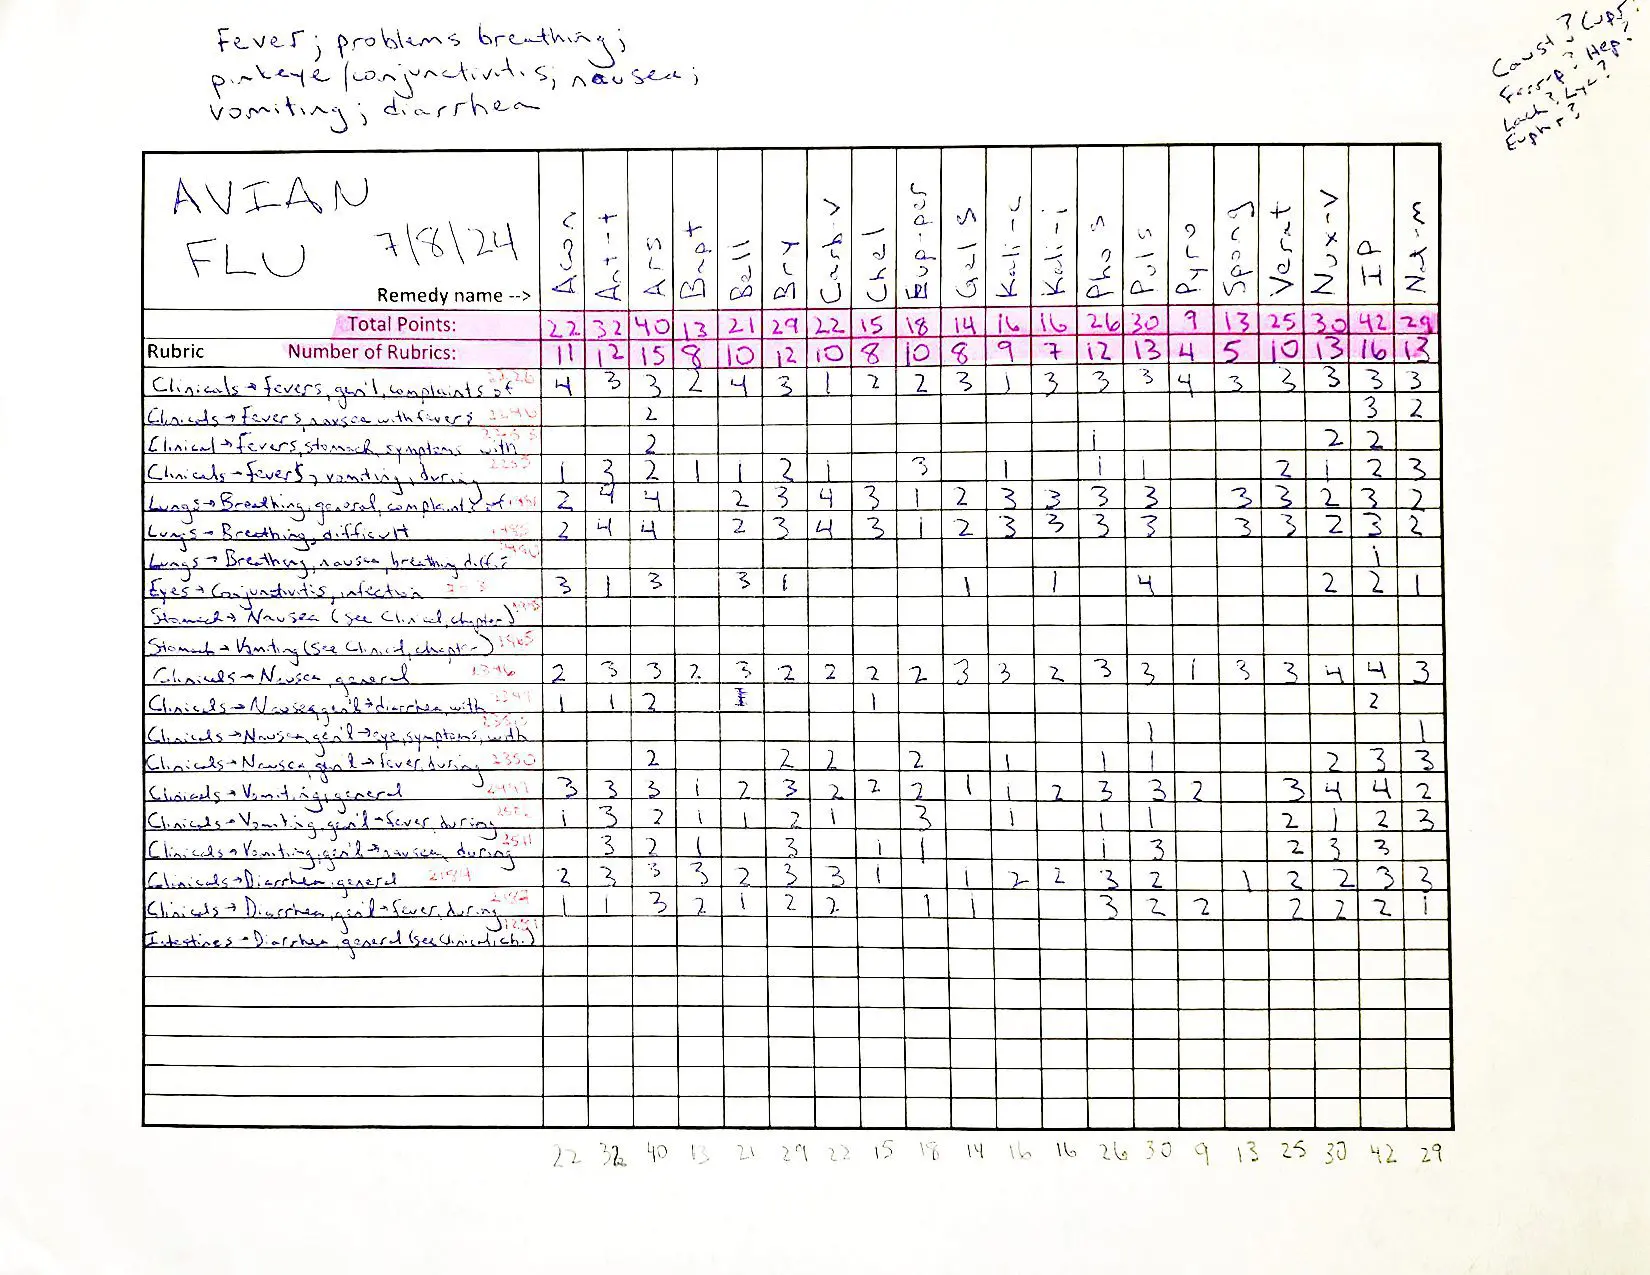 Fever; problems breathing;
pinkeye/conjunctivitis; nausea;
vomiting; diarrhea
Caust? Cup?
Ferr-p? Hep?
Lach? Lyc?
Euphr?
AVIAN
FLU 7/8/24
Remedy name --> Acon Ant-t Ars Bapt Bell Bry Carb-v Chel Eup-per Gels Kali-c Kali-i Phos Puls Pyro Spong Verat Nux-v IP Nat-m
Total Points: 22 32 40 13 21 29 22 15 18 14 16 16 26 30 9 13 25 30 42 29
Rubric Number of Rubrics: 11 12 15 8 10 12 10 8 10 8 9 7 12 13 4 5 10 13 16 13
Clinicals→fevers, gen'l, complaints of 4 3 3 2 4 3 1 2 2 3 1 3 3 3 4 3 3 3 3 3
Clinicals→Fevers, nausea with fevers 2 3 2
Clinical→fevers, stomach, symptoms with 2 1 2 2
Clinicals→fevers, vomiting, during 1 3 2 1 1 2 1 3 1 1 1 2 1 2 3
Lungs→Breathing, general, complaints of 2 4 4 2 3 4 3 1 2 3 3 3 3 3 3 2 3 2
Lungs→Breathing, difficult 2 4 4 2 3 4 3 1 2 3 3 3 3 3 3 2 3 2
Lungs→Breathing, nausea, breathing diff. 1
Eyes→Conjunctivitis, infection 3 1 3 3 1 1 1 4 2 2 1
Stomach→Nausea (see Clinical, chapter)
Stomach→Vomiting (see Clinical, chapter)
Clinicals→Nausea, general 2 3 3 2 3 2 2 2 2 3 3 2 3 3 1 3 3 4 4 3
Clinicals→Nausea, gen'l→diarrhea, with 1 1 2 1 2
Clinicals→Nausea, gen'l→eye, symptoms, with 1 1
Clinicals→Nausea, gen'l→fever, during 2350 2 2 2 2 1 1 1 2 3 3
Clinicals→Vomiting, general 3 3 3 1 2 3 2 2 2 1 1 2 3 3 2 3 4 4 2
Clinicals→Vomiting, gen'l→fever, during 1 3 2 1 1 2 1 3 1 1 1 2 1 2 3
Clinicals→Vomiting, gen'l→nausea, during 2511 3 2 1 3 1 1 1 3 2 3 3
Clinicals→Diarrhea, general 2184 2 3 3 3 2 3 3 1 1 2 2 3 2 1 2 2 3 3
Clinicals→Diarrhea, gen'l→fever, during 1 1 3 2 1 2 2 1 1 3 2 2 2 2 2 1
Intestines→Diarrhea, general (see Clinical, ch.)
22 32 40 13 21 29 22 15 18 14 16 16 26 30 9 13 25 30 42 29